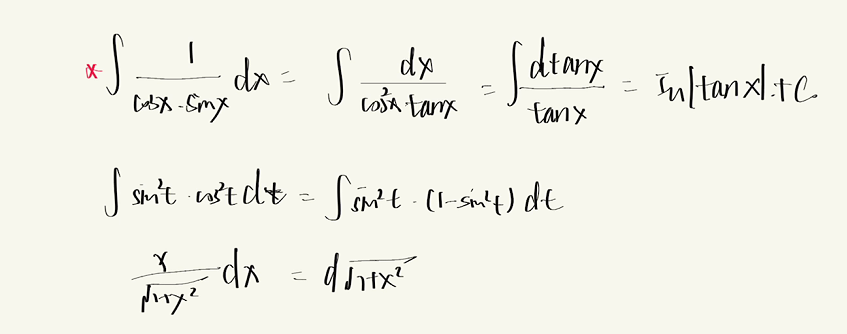 * ∫ 1/(cosx·sinx) dx = ∫ dx/(cos²x·tanx) = ∫ dtanx/tanx = In|tanx|+C
∫ sin²t·cos²t dt = ∫ sin²t·(1-sin²t) dt
x/√(1+x²) dx = d√(1+x²)